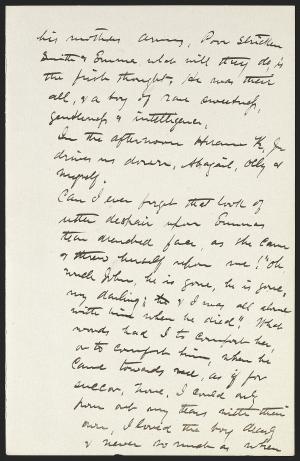 his mothers arms, Poor stricken
Smith & Emma what will they do, is
the first thought, He was their
all, & a boy of rare sweetness,
gentleness & intelligence,
In the afternoon Hiram K, Jr
drives us down, Abagail, Olly &
myself.
Can I ever forget that look of
utter despair upon Emmas
tear face, as she came
& threw herself upon me! "Oh
Uncle John, he is gone, he is gone,
my darling; & I was all alone
with him when he died" What
words had I to comfort her,
or to comfort him, when he
came towards me, as if for
succor, None, I could only
pour out my tears with their
own, I loved the boy dearly
& never so much as when